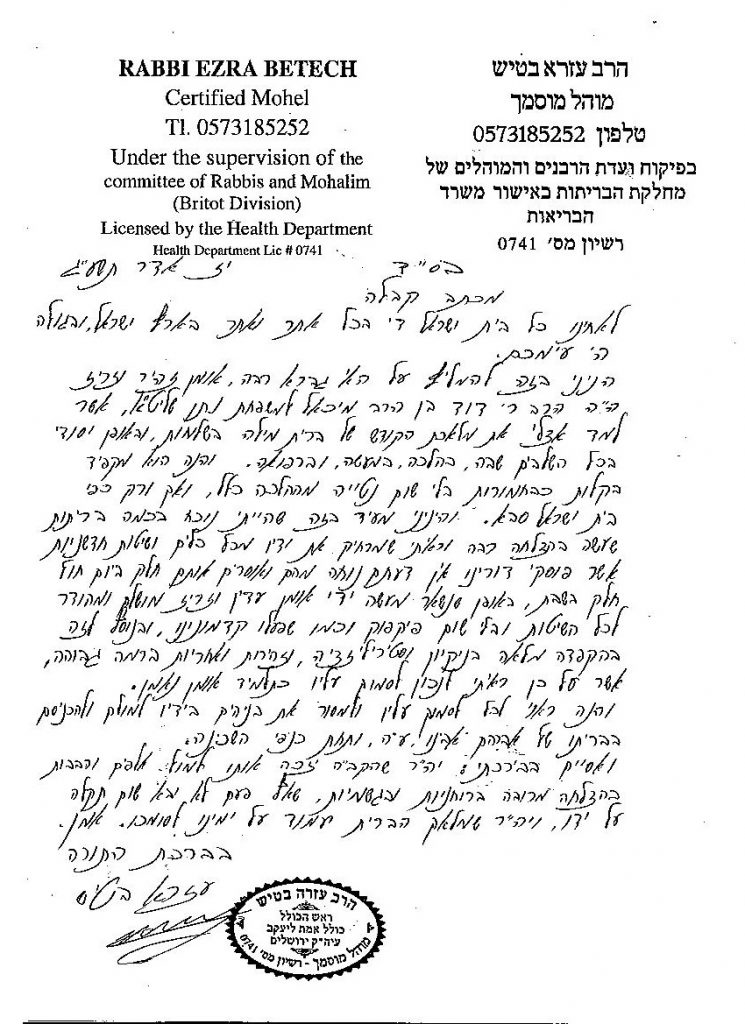 RABBI EZRA BETECH
Certified Mohel
Tl. 0573185252
Under the supervision of the
committee of Rabbis and Mohalim
(Britot Division)
Licensed by the Health Department
Health Department Lic # 0741
הרב עזרא בטיש
מוהל מוסמך
טלפון 0573185252
בפיקוח ועדת הרבנים והמוהלים של
מחלקת הבריתות באישור משרד
הבריאות
רשיון מס׳ 0741
בס״ד
יז אדר תשע״ג
מכתב קבלה
לאחינו כל בית ישראל די בכל אתר ואתר בארץ ישראל, ובגולה
ה׳ עימכם.
הנני בזה להמליץ על האי גברא רבה, אומן זהיר וזריז
ה״ה הרב ר׳ דוד בן הרב מיכאל למשפחת נתן שליט״א, אשר
למד אצלי את מלאכת הקודש של ברית מילה בשלמות, ובאופן יסודי
בכל השלבים שבה, בהלכה, במעשה, וברפואה. והנה הוא מקפיד
בקלות כבחמורות בלי שום נטייה מההלכה כלל, ואך ורק כפי
בית ישראל סבא. והנני מעיד בזה שהייתי נוכח בכמה בריתות
שעשה בהצלחה רבה וראיתי שמרחיק את ידיו מכל כלים ושיטות חדשניות
אשר פוסקי דורינו אין דעתם נוחה מהם ואוסרים אותם חלק ביום חול
חלק בשבת, באופן שנשאר מעשה ידי אומן עדין וזריז מושלם ומהודר
לכל השיטות ובלי שום פיקפוק וכמו שפעלו קדמונינו, ובנוסף לזה
בהקפדה מלאה בניקיון וסטיריליזציה, וזהירות ואחריות ברמה גבוהה,
אשר על כן ראיתי לנכון לסמוך עליו כתלמיד אומן ונאמן.
והנה ראוי לכל לסמוך עליו ולמסור את בניהם בידיו למולם ולהכניסם
בבריתו של אברהם אבינו ע״ה, ותחת כנפי השכינה.
ואסיים בברכתי: יה״ר שהקב״ה יזכה אותו למול אלפים ורבבות
בהצלחה מרובה ברוחניות ובגשמיות, שאף פעם לא יבא שום תקלה
על ידו, ויה״ר שמלאך הברית יעמוד על ימינו לסומכו. אמן.
בברכת התורה
עזרא בטיש
הרב עזרה בטיש
ראש הכולל
כולל אמת ליעקב
עיה״ק ירושלים
מוהל מוסמך - רשיון מס׳ 0741